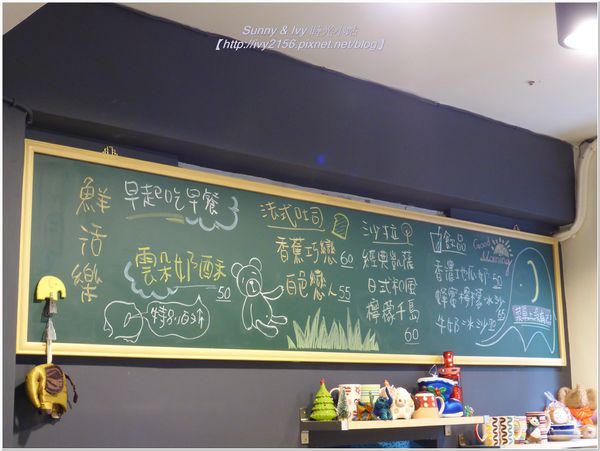 Sunny & Ivy 時光小站
【http://ivy2156.pixnet.net/blog】
鮮活樂
早起吃早餐
雲朵奶酥
50
特別口味
法式吐司
香蕉巧戀 60
白色戀人 55
沙拉
經典凱薩
日式和風
檸檬千島
60
飲品
Good Morning
香濃巧克力奶 50
蜂蜜檸檬冰沙 65